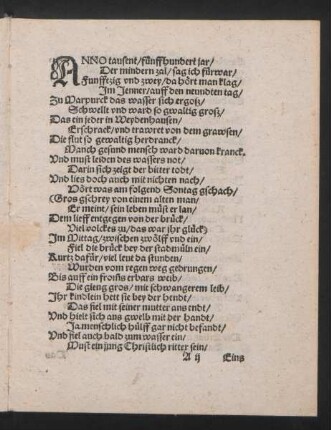 ANNO tausent/ fünffhundert jar/
Der mindern zal/ sag ich fürwar/
Funfftzig vnd zwey/ da hört man klag/
Im Jenner/ auff den neundten tag/
Zu Marpurck das wasser sich ergoß/
Schwellt vnd ward so gewaltig groß/
Das ein jeder in Weydenhausen/
Erschrack/ vnd trawret von dem grawsen/
Die flut so gewaltig herdranck/
Manch gesund mensch ward daruon kranck.
Vnd must leiden des wassers not/
Darin sich zeigt der bitter todt/
Vnd lies doch auch mit nichten nach/
Hört was am folgend Sontag gschach/
(Gros gschrey von einem alten man/
Er meint/ sein leben müst er lan/
Dem lieff entgegen von der brück/
Viel volckes zu/ das war jhr glück)
Im Mittag/ zwischen zwölff vnd ein/
Fiel die brück bey der stadmüln ein/
Kurtz dafür/ viel leut da stunden/
Wurden vom regen weg gedrungen/
Bis auff ein froms erbars weib/
Die gieng gros/ mit schwangerem leib/
Ihr kindlein hett sie bey der hendt/
Das fiel mit seiner mutter ans endt/
Vnd hielt sich ans gwelb mit der handt/
Ja menschlich hülff gar nicht befandt/
Vnd fiel auch bald zum wasser ein/
Must ein jung Christlich ritter sein/
A ij Eins